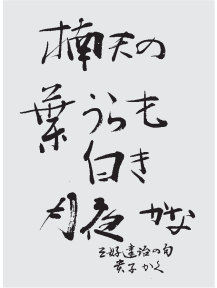 楠天の
葉うらも
白き
月夜かな
三好達治の句
貴子かく